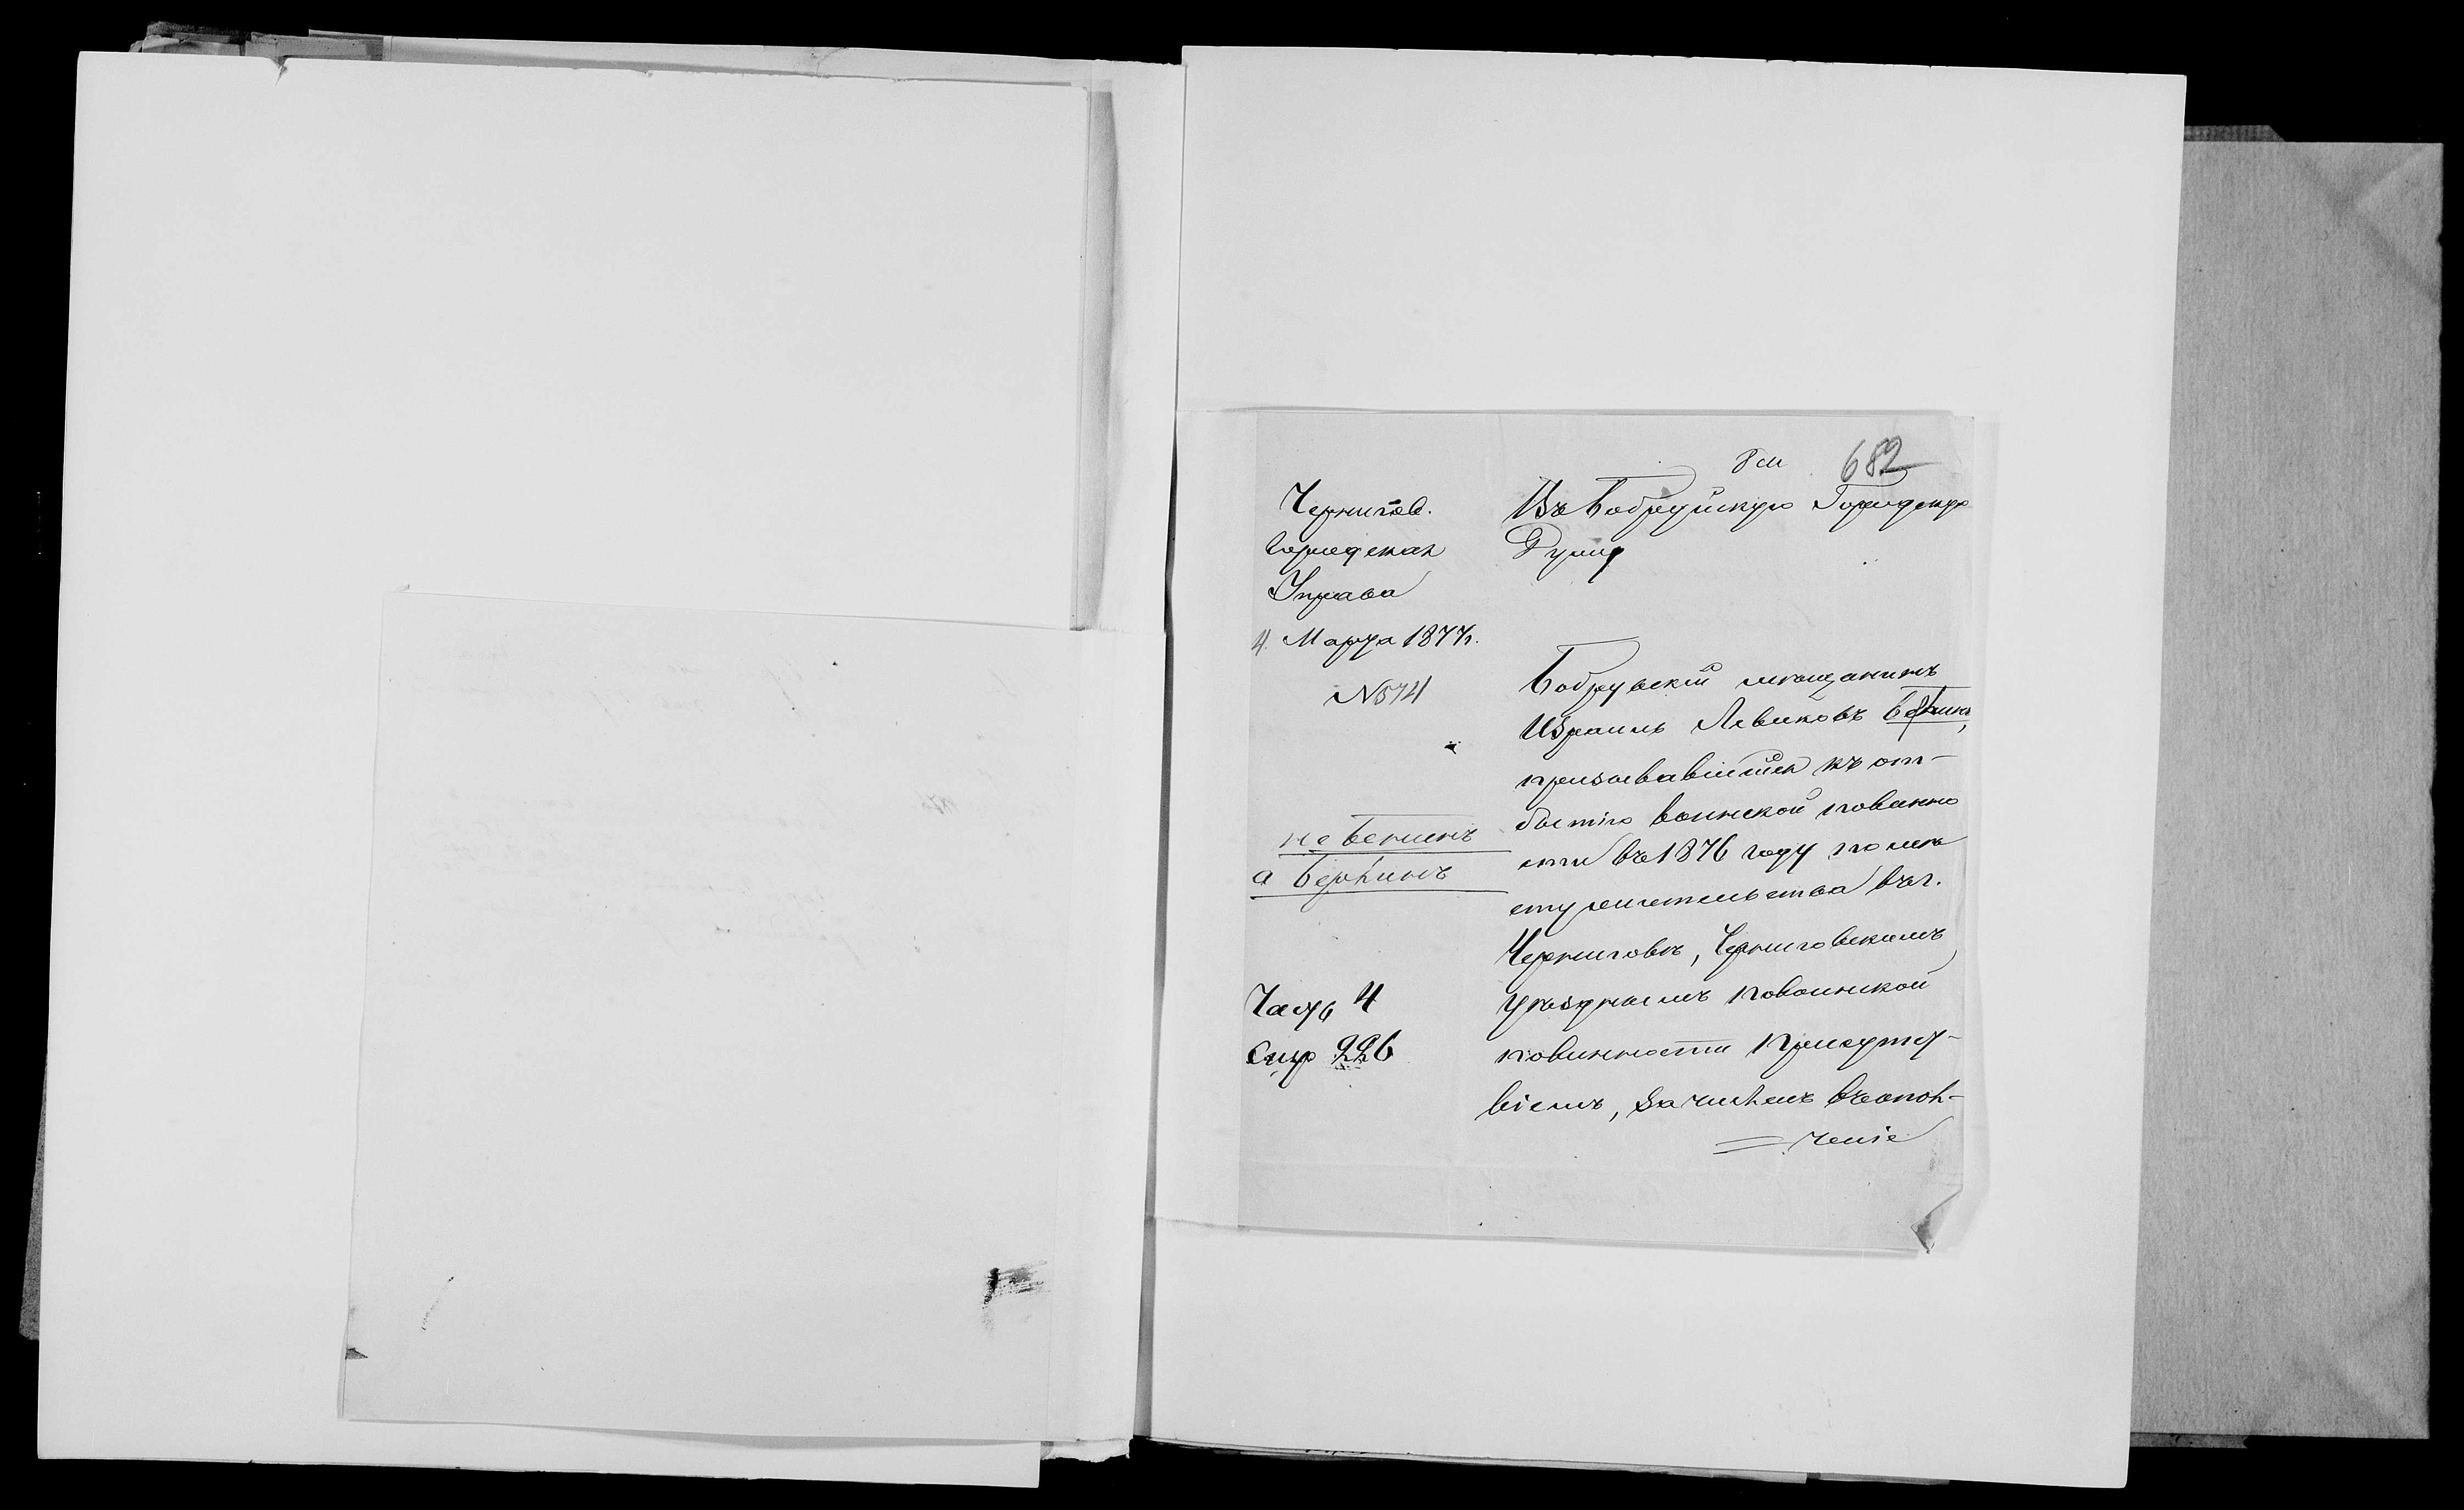 682
Чернигов.
Городская
Управа
4 Марта 1877г.
№ 574
не Бенинъ
а Беркинъ
Часть 4
Стр 226
Въ Бобруйскую Городскую
Думу
Бобруйскій мѣщанинъ
Израиль Левиковъ
призывавшійся къ от-
бытію воинской повинно
сти въ 1876 году по мѣ
сту жительства въ г.
Черниговѣ, Черниговскимъ
уѣзднымъ по воинской
повинности Присутст-
віемъ, зачисленъ въ опол-
ченіе